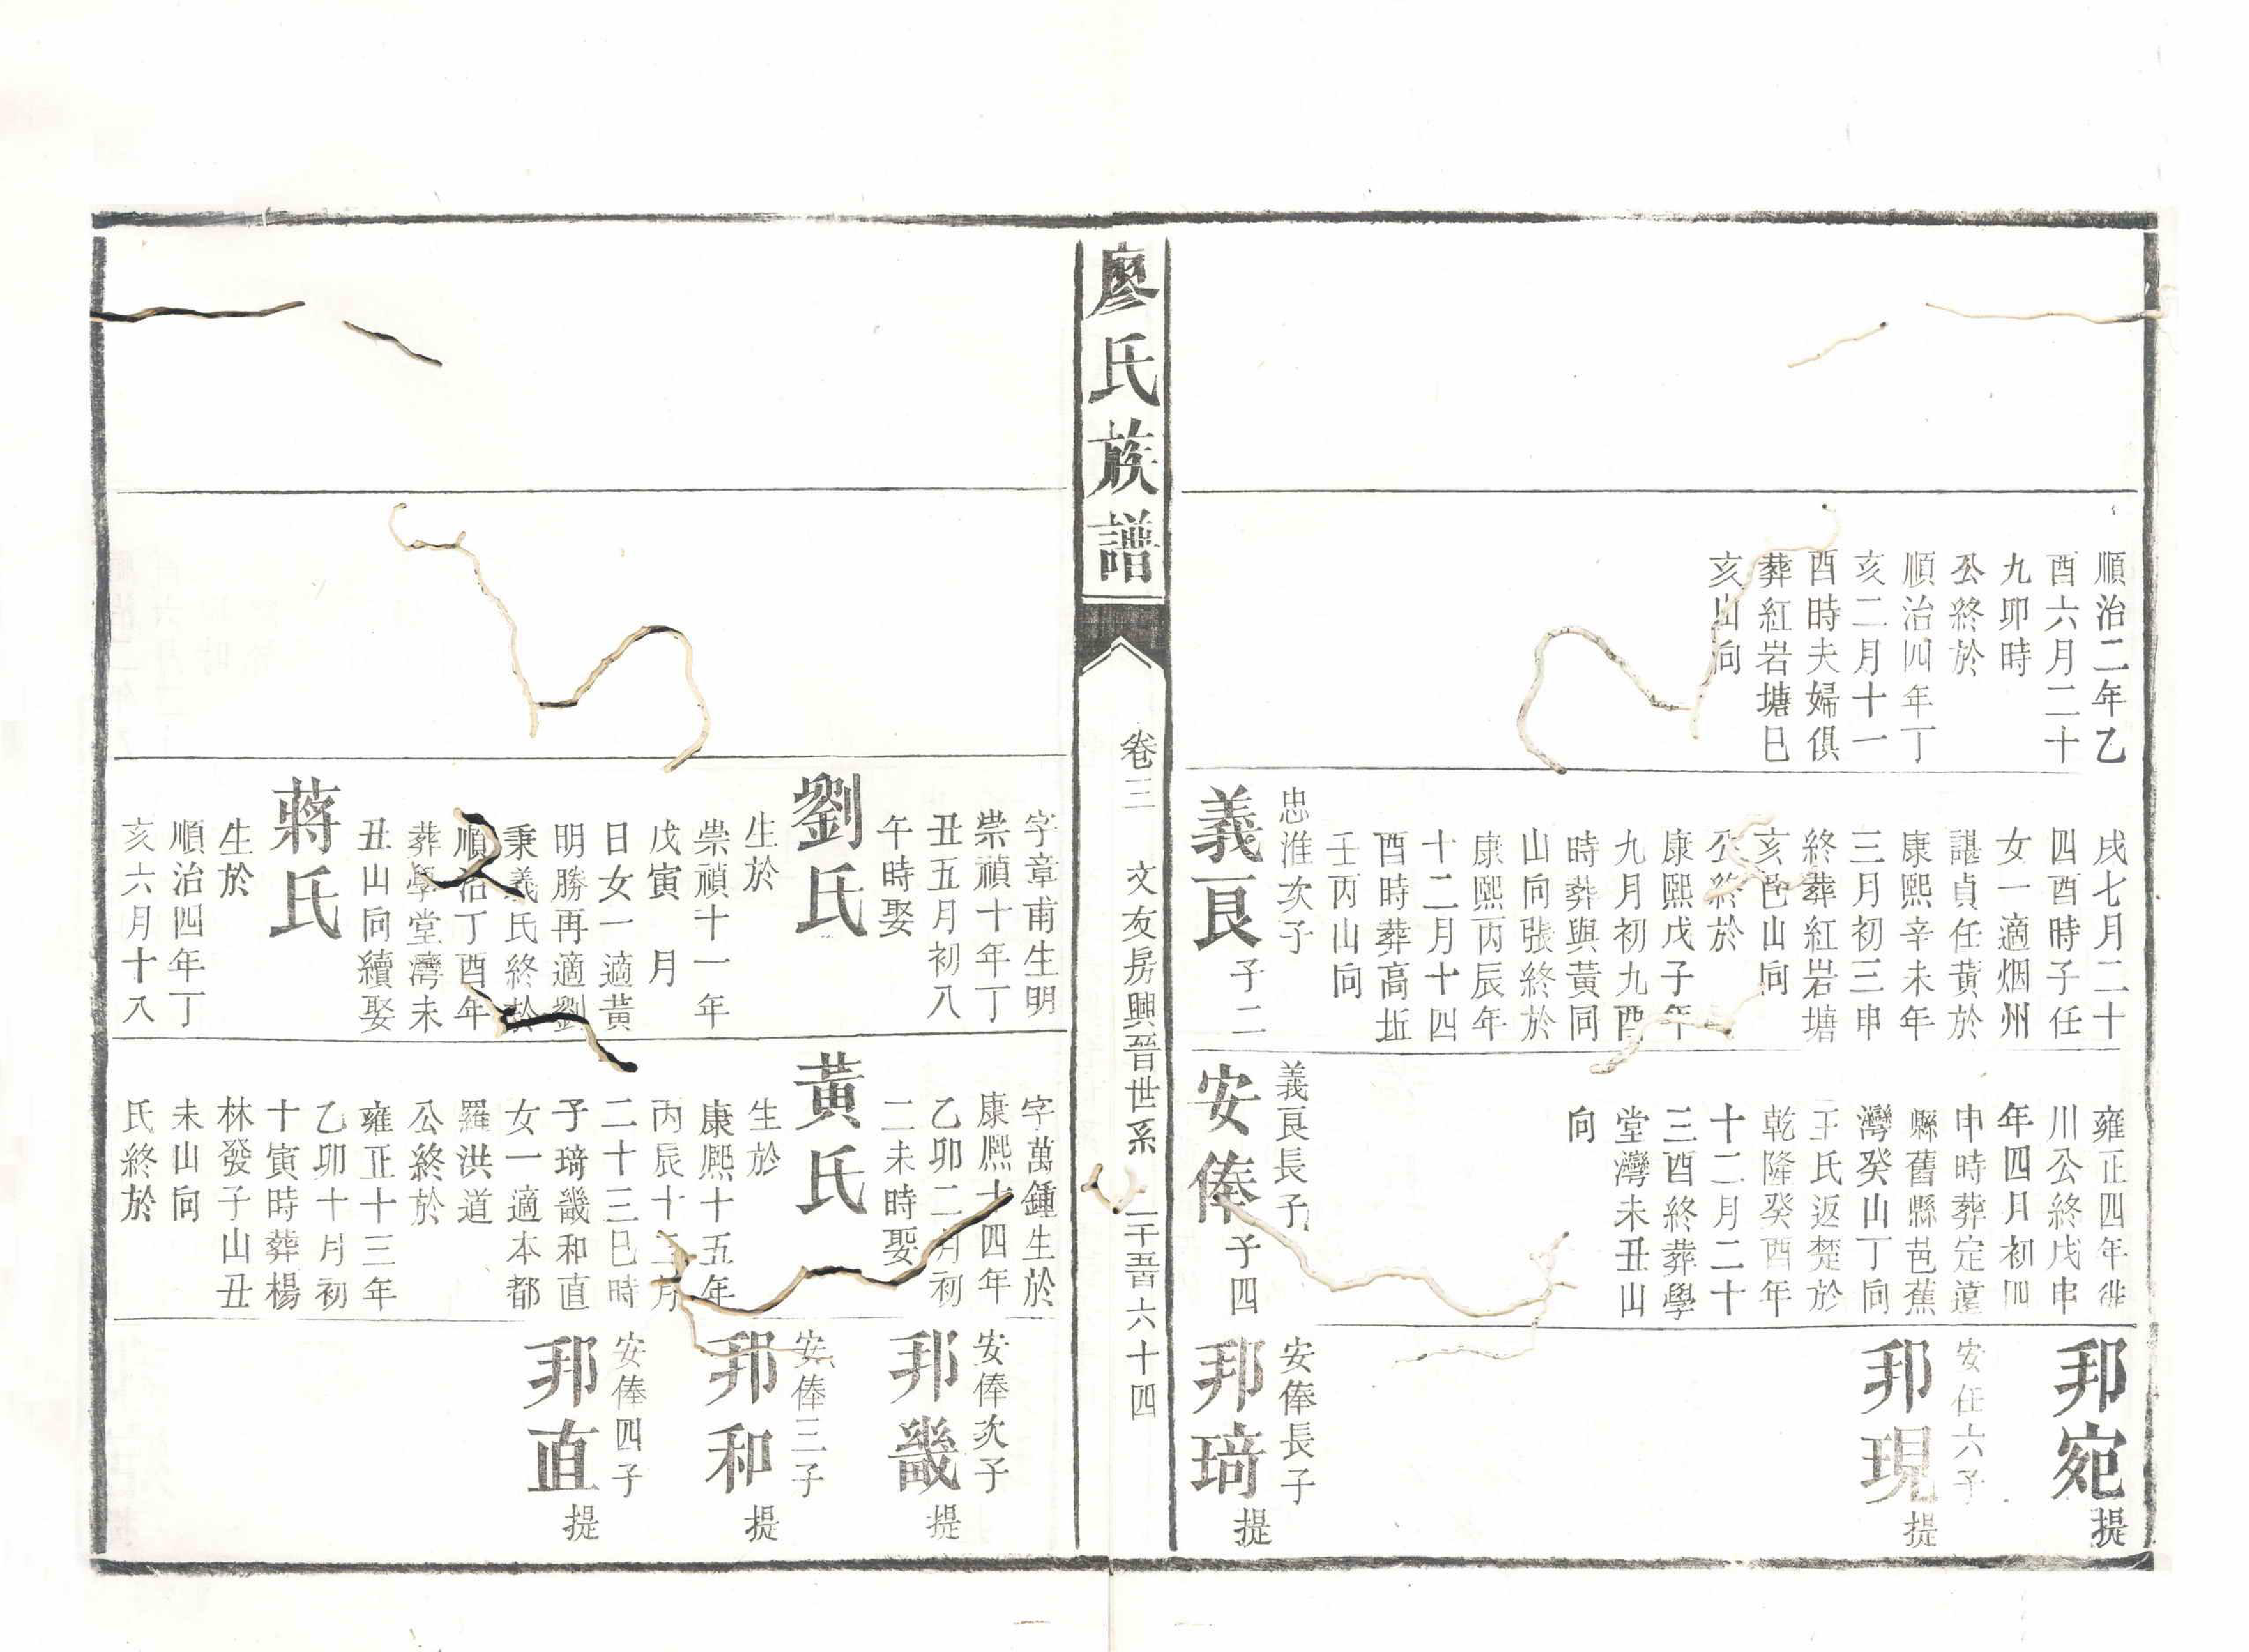 順治二年乙
酉六月二十
九卯時
公終於
順治四年丁
亥二月十一
酉時夫婦俱
葬紅岩塘巳
亥山向
戌七月二十
四酉時子任
女一適烟州
諶貞任黃於
康熙辛未年
三月初三申
終葬紅岩塘
亥邑山向
公終於
康熙戊子年
九月初九酉
時葬與黃同
山向張終於
康熙丙辰年
十二月十四
酉時葬高坵
壬丙山向
忠淮次子
義良
子二
雍正四年徙
川公終戊申
年四月初四
申時葬定遠
縣舊縣芭蕉
灣癸山丁向
王氏返楚於
乾隆癸酉年
十二月二十
三酉終葬學
堂灣未丑山
向
義良長子
安俸
子四
邦宛
提
安任六子
邦現
提
安俸長子
邦琦
提
廖氏族譜
卷三
文友房興晉世系
二千五百六十四
字章甫生明
崇禎十年丁
丑五月初八
午時娶
劉氏
生於
崇禎十一年
戊寅 月
日女一適黃
明勝再適劉
秉義氏終於
順治丁酉年
葬學堂灣未
丑山向續娶
蔣氏
生於
順治四年丁
亥六月十八
字萬鍾生於
康熙十四年
乙卯二月初
二未時娶
黃氏
生於
康熙十五年
丙辰十二月
二十三巳時
子琦畿和直
女一適本都
羅洪道
公終於
雍正十三年
乙卯十月初
十寅時葬楊
林發子山丑
未山向
氏終於
安俸次子
邦畿
提
安俸三子
邦和
提
安俸四子
邦直
提